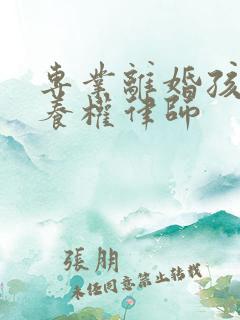 專業離婚孩
養權律師
張朋
未經同意禁止轉載